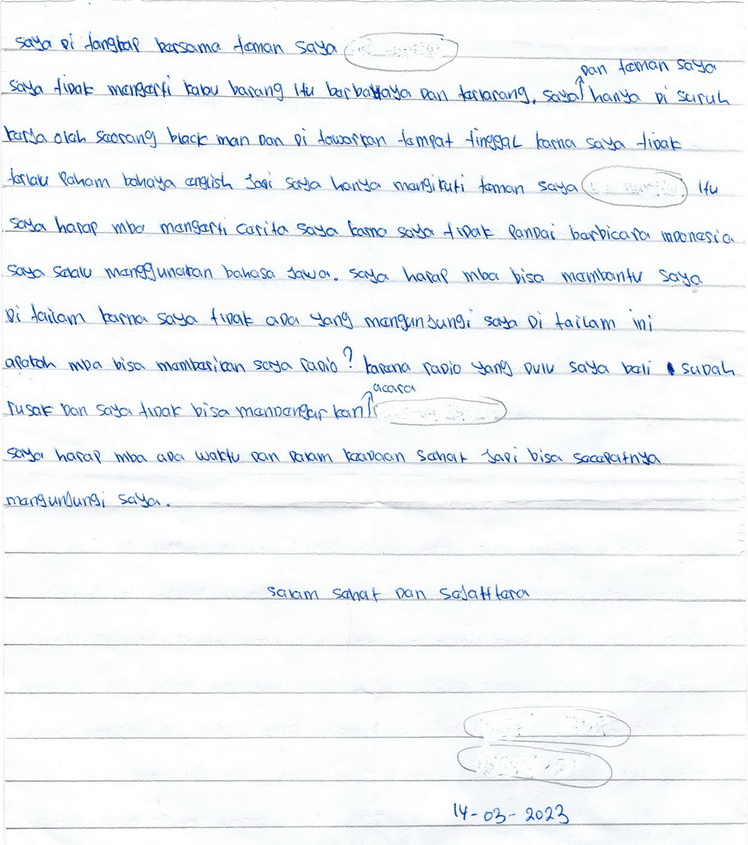 saya di tangkap bersama teman saya
dan teman saya
saya tidak mengerti kalau barang itu berbahaya dan terlarang, saya hanya di suruh
kerja oleh seorang black man dan di tawarkan tempat tinggal karna saya tidak
terlalu paham bahaya english jadi saya hanya mengikuti teman saya itu
saya harap mba mengerti cerita saya karna saya tidak pandai berbicara indonesia
saya selalu menggunakan bahasa jawa. saya harap mba bisa membantu saya
di tailam karna saya tidak ada yang mengunjungi saya di tailam ini
apakah mba bisa memberikan saya radio? karena radio yang dulu saya beli sudah
acara
rusak dan saya tidak bisa mendengarkan
saya harap mba ada waktu dan dalam keadaan sehat jadi bisa secepatnya
mengunjungi saya.
salam sehat dan sejahtera
14-03-2023